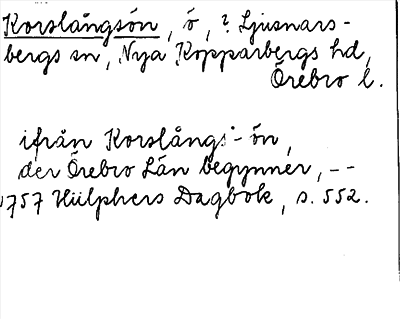 Korslångsön, ö, ? Ljusnars-
bergs sn, Nya Kopparbergs hd,
Örebro l.
ifrån Korslångs-ön,
der Örebro Län begynner, --
1757 Hülphers Dagbok, s. 552.